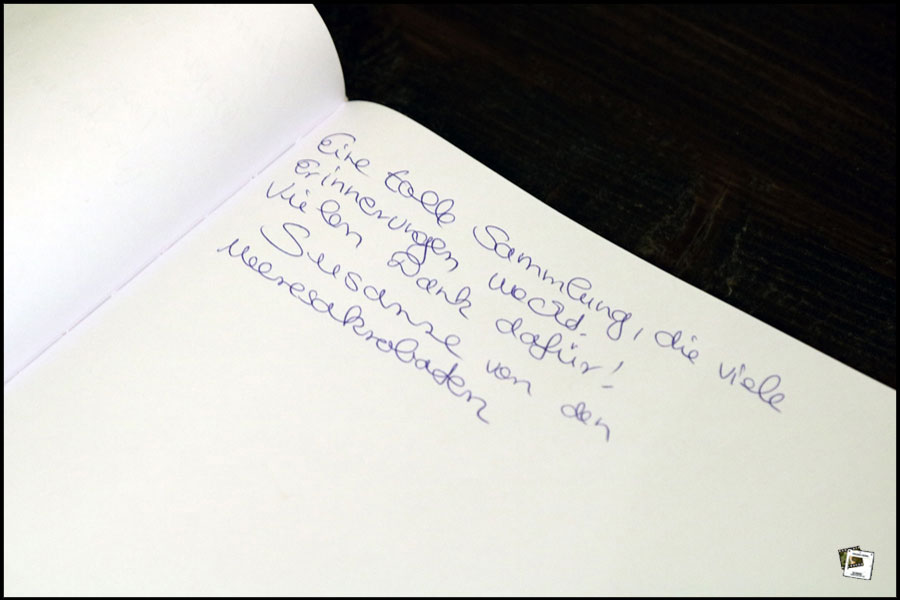 Eine tolle Sammlung, die viele
Erinnerungen weckt.
Vielen Dank dafür!
Susanne von den
Meeresakrobaten